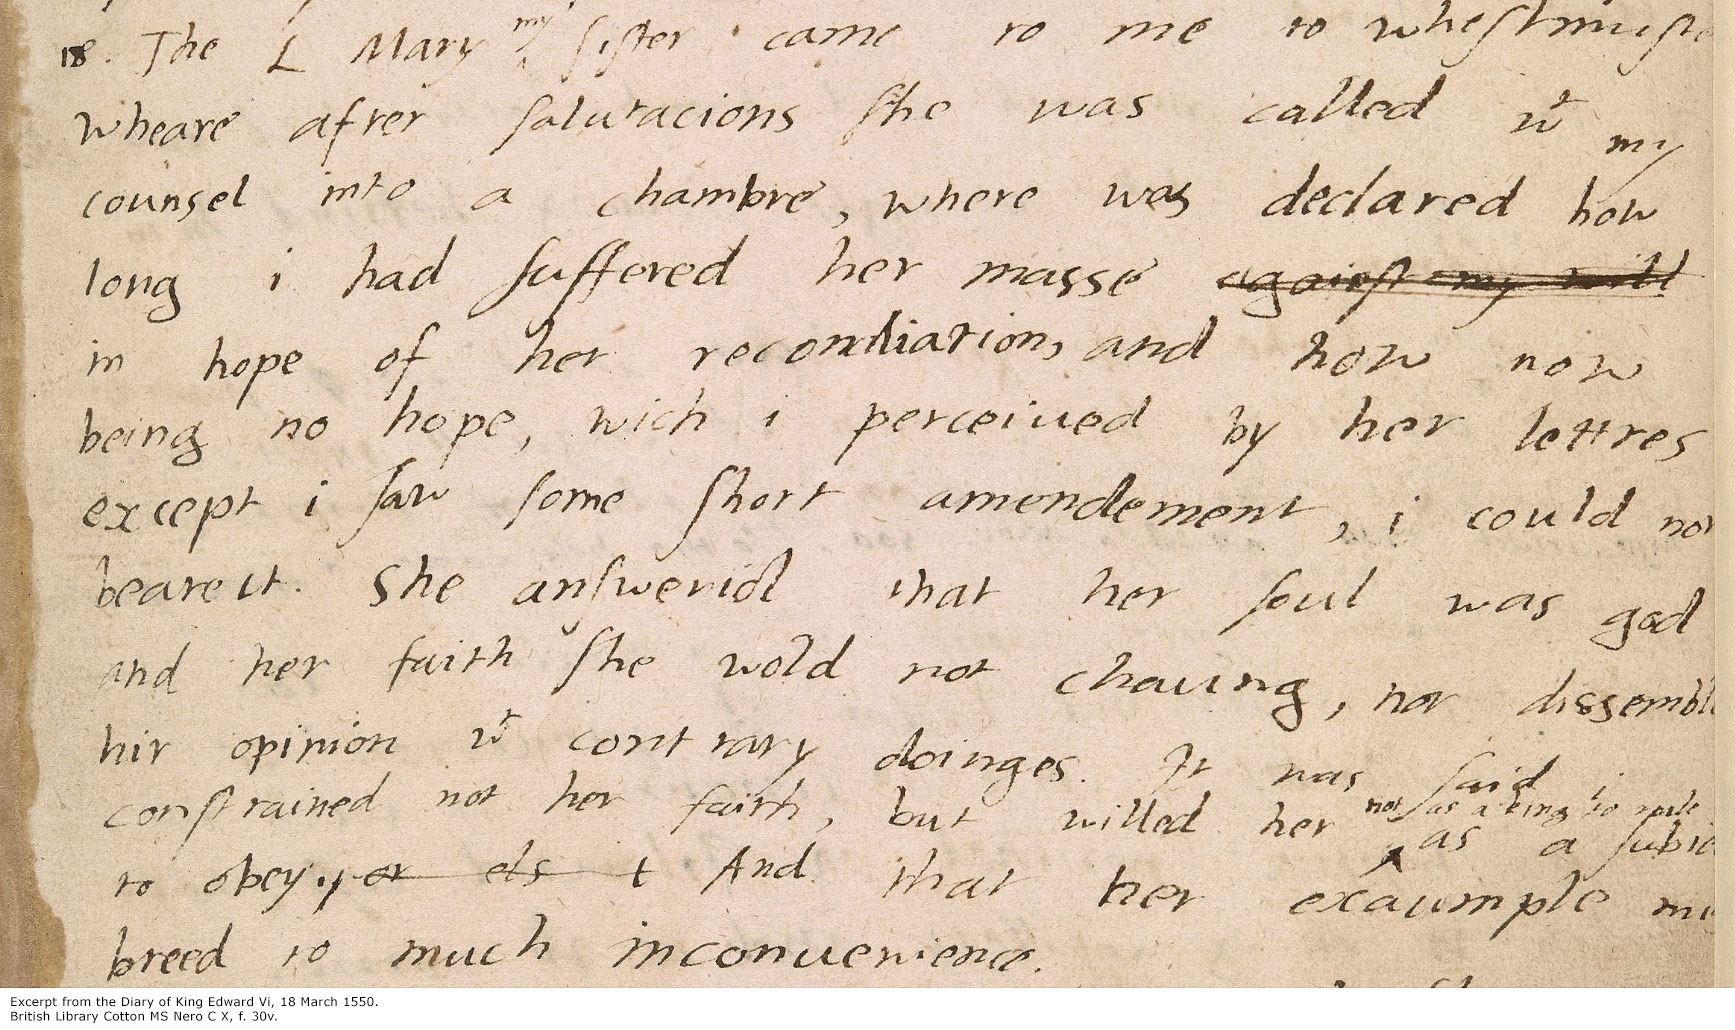 18. The L Mary my sister came to me to Whestminste
wheare after salutacions she was called wt my
counsel into a chambre, where was declared how
long i had suffered her masse against my will
in hope of her reconsiliation, and how now
being no hope, wich i perceiued by her lettres
except i saw some short amendement, i could not
beare it. She answerid that her soul was god
and her faith she wold not chaung, nor dissemble
hir opinion wt contrary doinges. It was said i
constrained not her faith, but willed her not as a king to rule
as a subie
to obey. or els t And that her exaumple mi
breed to much inconuenience.
Excerpt from the Diary of King Edward Vi, 18 March 1550.
British Library Cotton MS Nero C X, f. 30v.